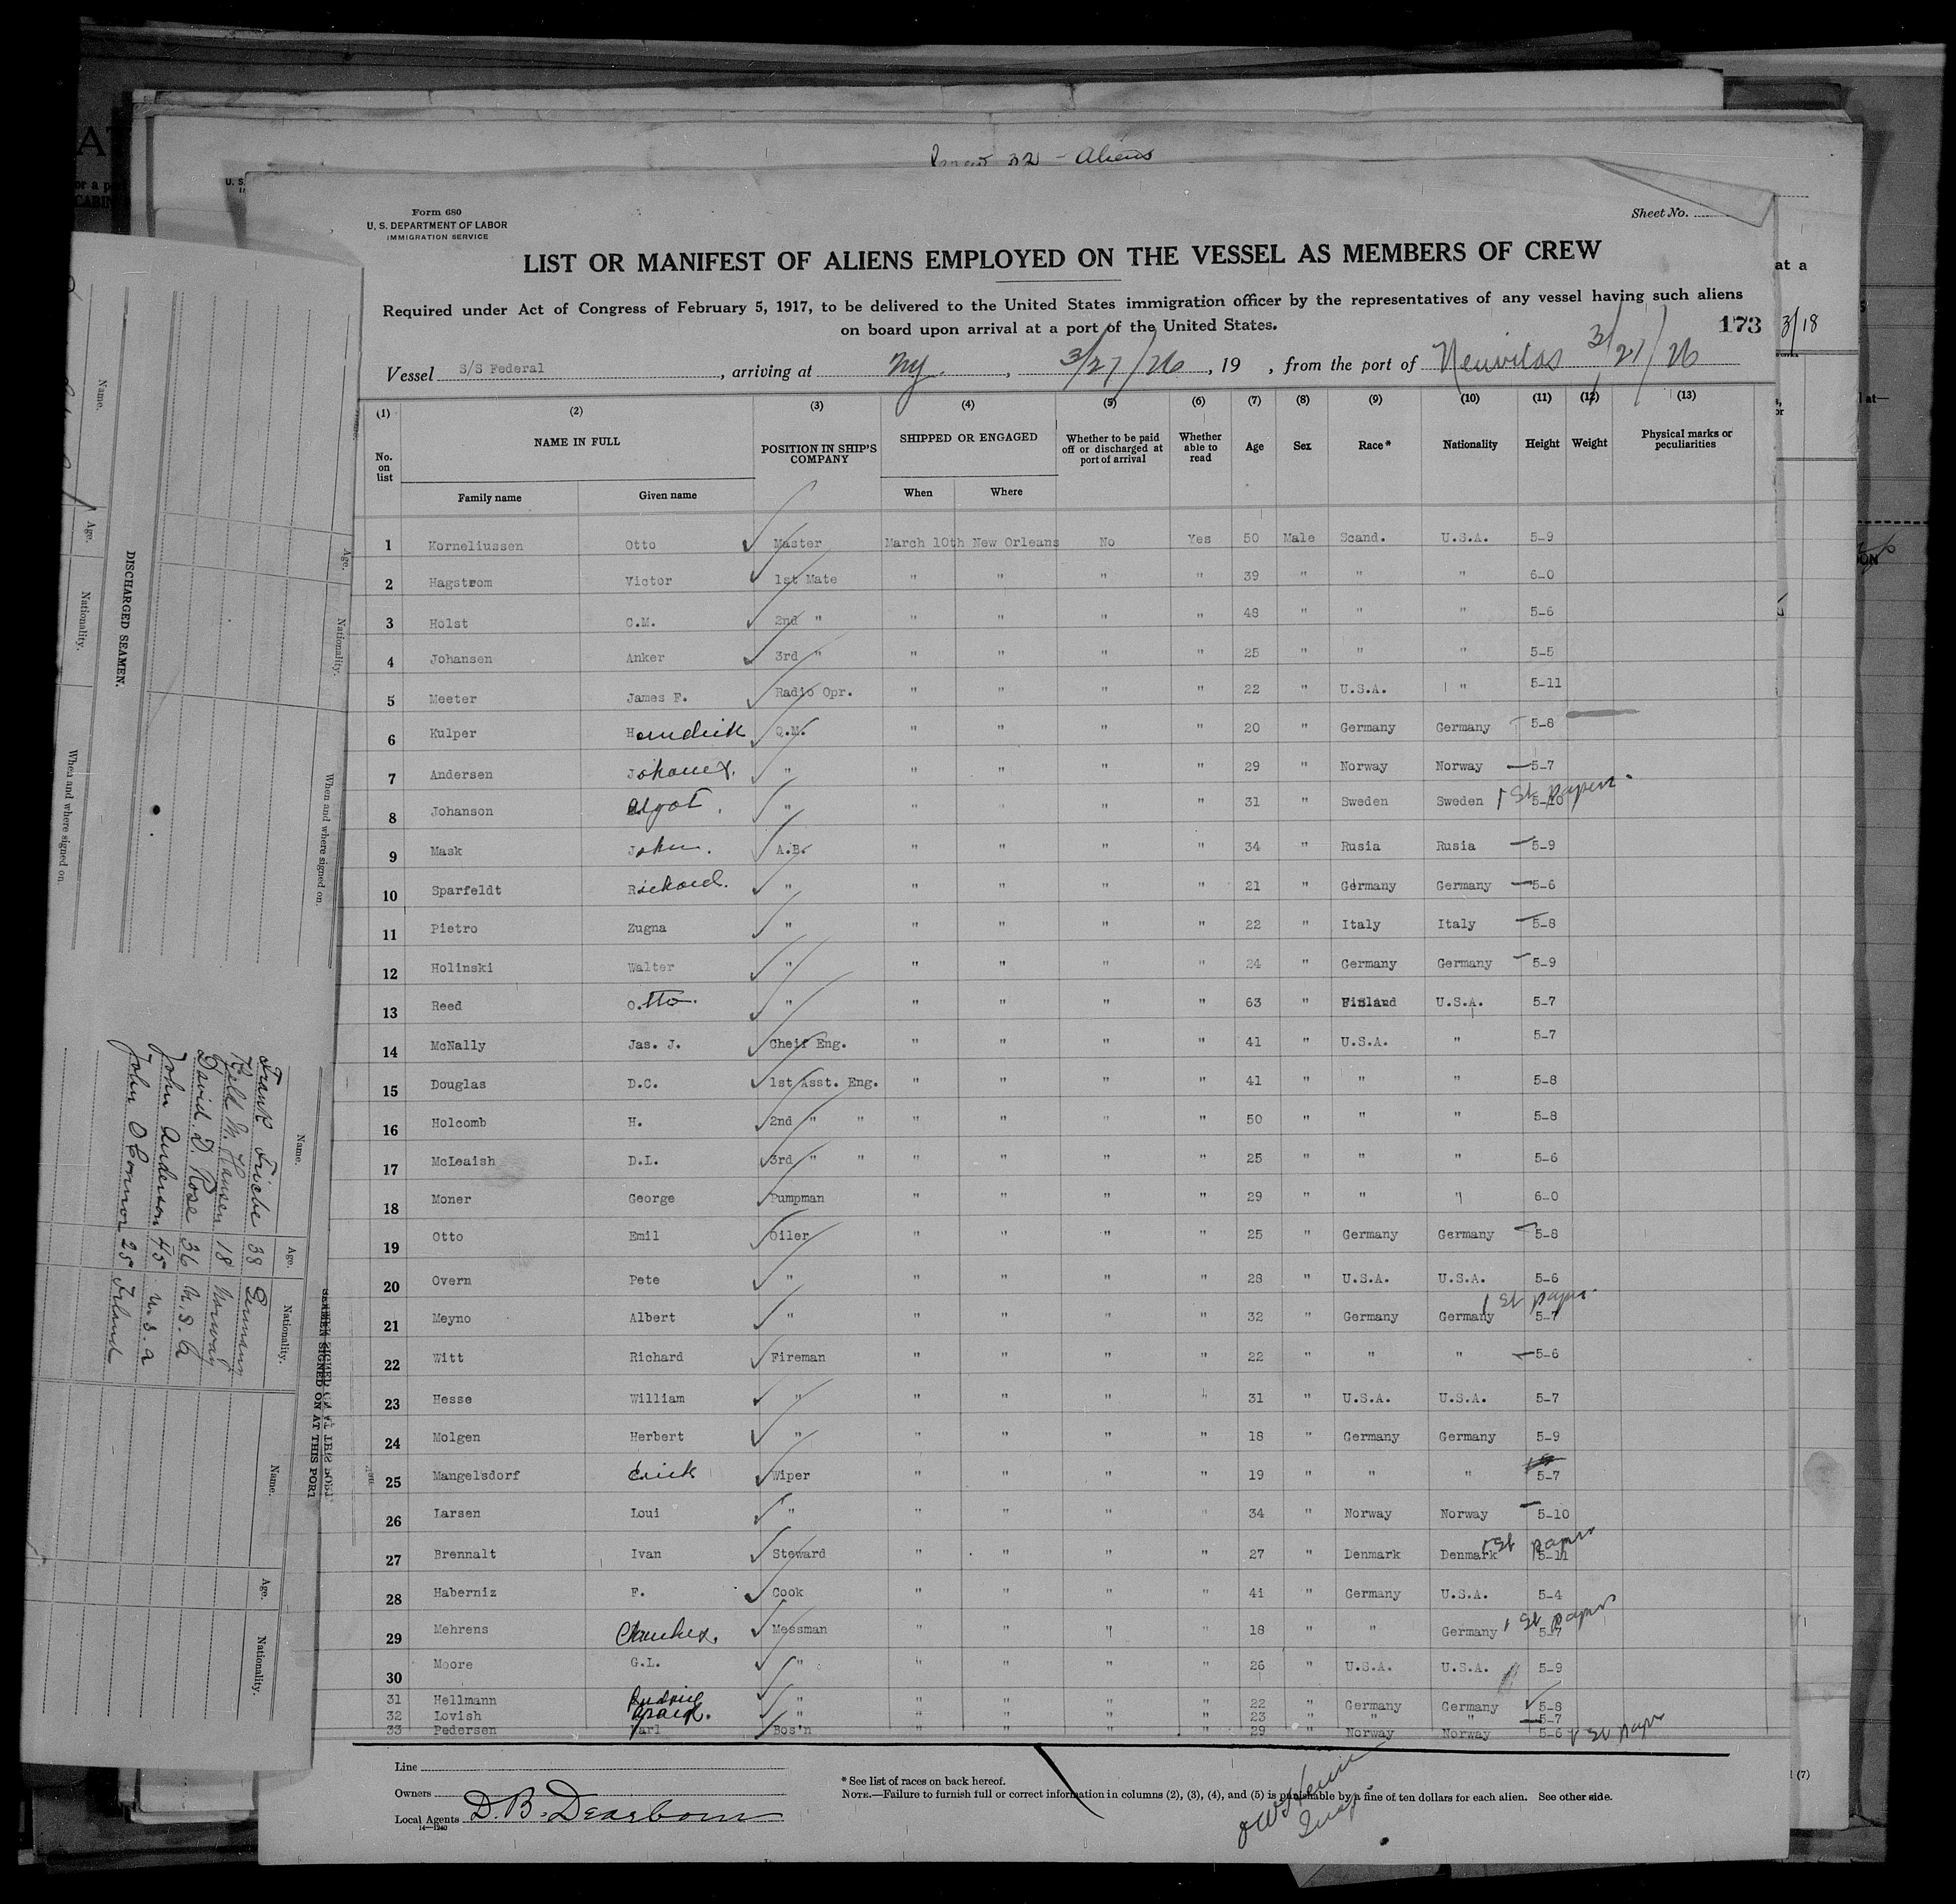 32 - Aliens
Form 680
U. S. DEPARTMENT OF LABOR
IMMIGRATION SERVICE
Sheet No.
LIST OR MANIFEST OF ALIENS EMPLOYED ON THE VESSEL AS MEMBERS OF CREW
Required under Act of Congress of February 5, 1917, to be delivered to the United States immigration officer by the representatives of any vessel having such aliens
on board upon arrival at a port of the United States.
173
Vessel S/S Federal, arriving at Ny., 3/27/26, 19 , from the port of Neuvitas 3/27/26
(1) (2) (3) (4) (5) (6) (7) (8) (9) (10) (11) (12) (13)
No. on list NAME IN FULL POSITION IN SHIP'S COMPANY SHIPPED OR ENGAGED Whether to be paid off or discharged at port of arrival Whether able to read Age Sex Race* Nationality Height Weight Physical marks or peculiarities
Family name Given name When Where
1 Korneliussen Otto Master March 10th New Orleans No Yes 50 Male Scand. U.S.A. 5-9
2 Hagstrom Victor 1st Mate " " " " 39 " " " 6-0
3 Holst C.M. 2nd " " " " " 48 " " " 5-6
4 Johansen Anker 3rd " " " " " 25 " " " 5-5
5 Meeter James F. Radio Opr. " " " " 22 " U.S.A. " 5-11
6 Kulper Hendrick Q.M. " " " " 20 " Germany Germany 5-8
7 Andersen " " " " " 29 " Norway Norway 5-7
8 Johanson Algot " " " " " 31 " Sweden Sweden 5-10 1st papers
9 Mask John A.B. " " " " 34 " Rusia Rusia 5-9
10 Sparfeldt Richard. " " " " " 21 " Germany Germany 5-6
11 Pietro Zugna " " " " " 22 " Italy Italy 5-8
12 Holinski Walter " " " " " 24 " Germany Germany 5-9
13 Reed Otto. " " " " " 63 " Finland U.S.A. 5-7
14 McNally Jas. J. Cheif Eng. " " " " 41 " U.S.A. " 5-7
15 Douglas D.C. 1st Asst. Eng. " " " " 41 " " " 5-8
16 Holcomb H. 2nd " " " " " " 50 " " " 5-8
17 McLeaish D.L. 3rd " " " " " " 25 " " " 5-6
18 Moner George Pumpman " " " " 29 " " " 6-0
19 Otto Emil Oiler " " " " 25 " Germany Germany 5-8
20 Overn Pete " " " " " 28 " U.S.A. U.S.A. 5-6
21 Meyno Albert " " " " " 32 " Germany Germany 5-7 1st papers
22 Witt Richard Fireman " " " " 22 " " " 5-6
23 Hesse William " " " " " 31 " U.S.A. U.S.A. 5-7
24 Molgen Herbert " " " " " 18 " Germany Germany 5-9
25 Mangelsdorf Erick Wiper " " " " 19 " " " 5-7
26 Larsen Loui " " " " " 34 " Norway Norway 5-10
27 Brennalt Ivan Steward " " " " 27 " Denmark Denmark 5-11 1st papers
28 Haberniz F. Cook " " " " 41 " Germany U.S.A. 5-4
29 Mehrens Messman " " " " 18 " " Germany 5-7 1st papers
30 Moore G.L. " " " " " 26 " U.S.A. U.S.A. 5-9
31 Hellmann " " " " " 22 " Germany Germany 5-8
32 Lovish " " " " " 23 " " " 5-7
33 Pedersen Karl Bos'n " " " " 29 " Norway Norway 5-6 1st papers
Line
Owners
Local Agents D. B. Dearborn
14—1240
* See list of races on back hereof.
NOTE.—Failure to furnish full or correct information in columns (2), (3), (4), and (5) is punishable by a fine of ten dollars for each alien. See other side.
DISCHARGED SEAMEN.
Name. Age. Nationality. When and where signed on.
Age. Nationality. When and where signed on.
SEAMEN SIGNED ON AT THIS PORT
Name. Age. Nationality.
Frank Friebe 38 Germany
M. Hansen 18 Norway
David. D. Rose 36 U.S.A
John Anderson 45 U.S.A
John O Connor 25 Irland
Name. Age. Nationality.
at a
3/18
(7)